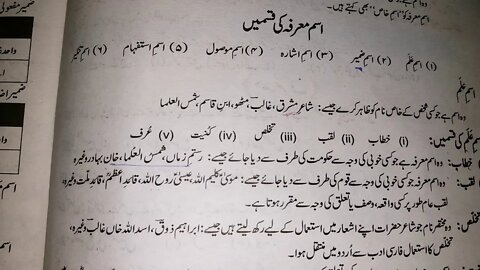 وہ اسم معرفہ کو "اسم خاص" بھی کہتے ہیں۔
اسم معرفہ کی قسمیں
(۱) اسم علم (۲) اسم ضمیر (۳) اسم اشارہ (۴) اسم موصول (۵) اسم استفہام (۶) اسم تنکیر
اسم علم
وہ اسم ہے جو کسی شخص کے خاص نام کو ظاہر کرے جیسے: شاعر مشرق، غالب، مٹھو، ابن قاسم، شمس العلما
اسم علم کی قسمیں: (i) خطاب (ii) لقب (iii) تخلص (iv) کنیت (v) عرف
خطاب: وہ اسم معرفہ ہے جو کسی خوبی کی وجہ سے حکومت کی طرف سے دیا جائے جیسے: رستم زماں، شمس العلما، خان بہادر وغیرہ
لقب: وہ اسم معرفہ ہے جو کسی خوبی کی وجہ سے قوم کی طرف سے دیا جائے جیسے: موسیٰ کلیم اللہ، عیسیٰ روح اللہ، قائد اعظم، قائد ملت وغیرہ،
لقب عام طور پر کسی واقعہ، وصف یا تعلق کی وجہ سے مقرر ہوتا ہے۔
تخلص: وہ مختصر نام جو شاعر حضرات اپنے اشعار میں استعمال کے لیے رکھ لیتے ہیں جیسے: ابراہیم ذوق، اسد اللہ خاں غالب وغیرہ،
تخلص کا استعمال فارسی ادب سے اُردو میں منتقل ہوا۔